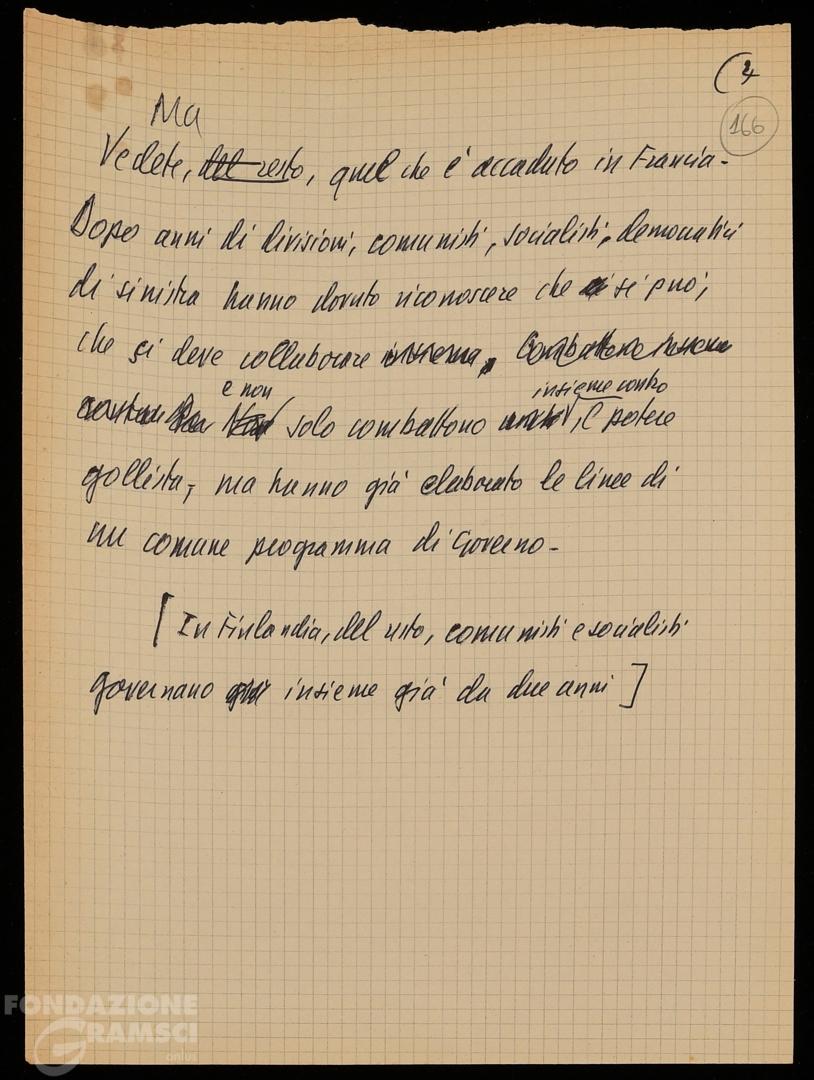 (4
166
Ma
Vedete, del resto, quel che è accaduto in Francia -
Dopo anni di divisioni, comunisti, socialisti, democratici
di sinistra hanno dovuto riconoscere che si può,
che si deve collaborare insieme, Combattono insieme
e non insieme contro
solo combattono il potere
gollista, ma hanno già elaborato le linee di
un comune programma di Governo -
[In Finlandia, del resto, comunisti e socialisti
governano già insieme già da due anni]
FONDAZIONE
GRAMSCI
onlus